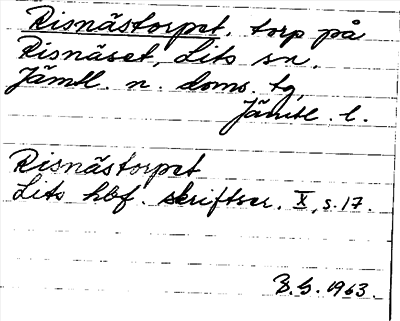 Risnästorpet, torp på
Risnäset, Lits sn,
Jämtl. n. doms. tg,
Jämtl. l.
Risnästorpet
Lits hbf. skriftser. X, s. 17.
B.G. 1963.